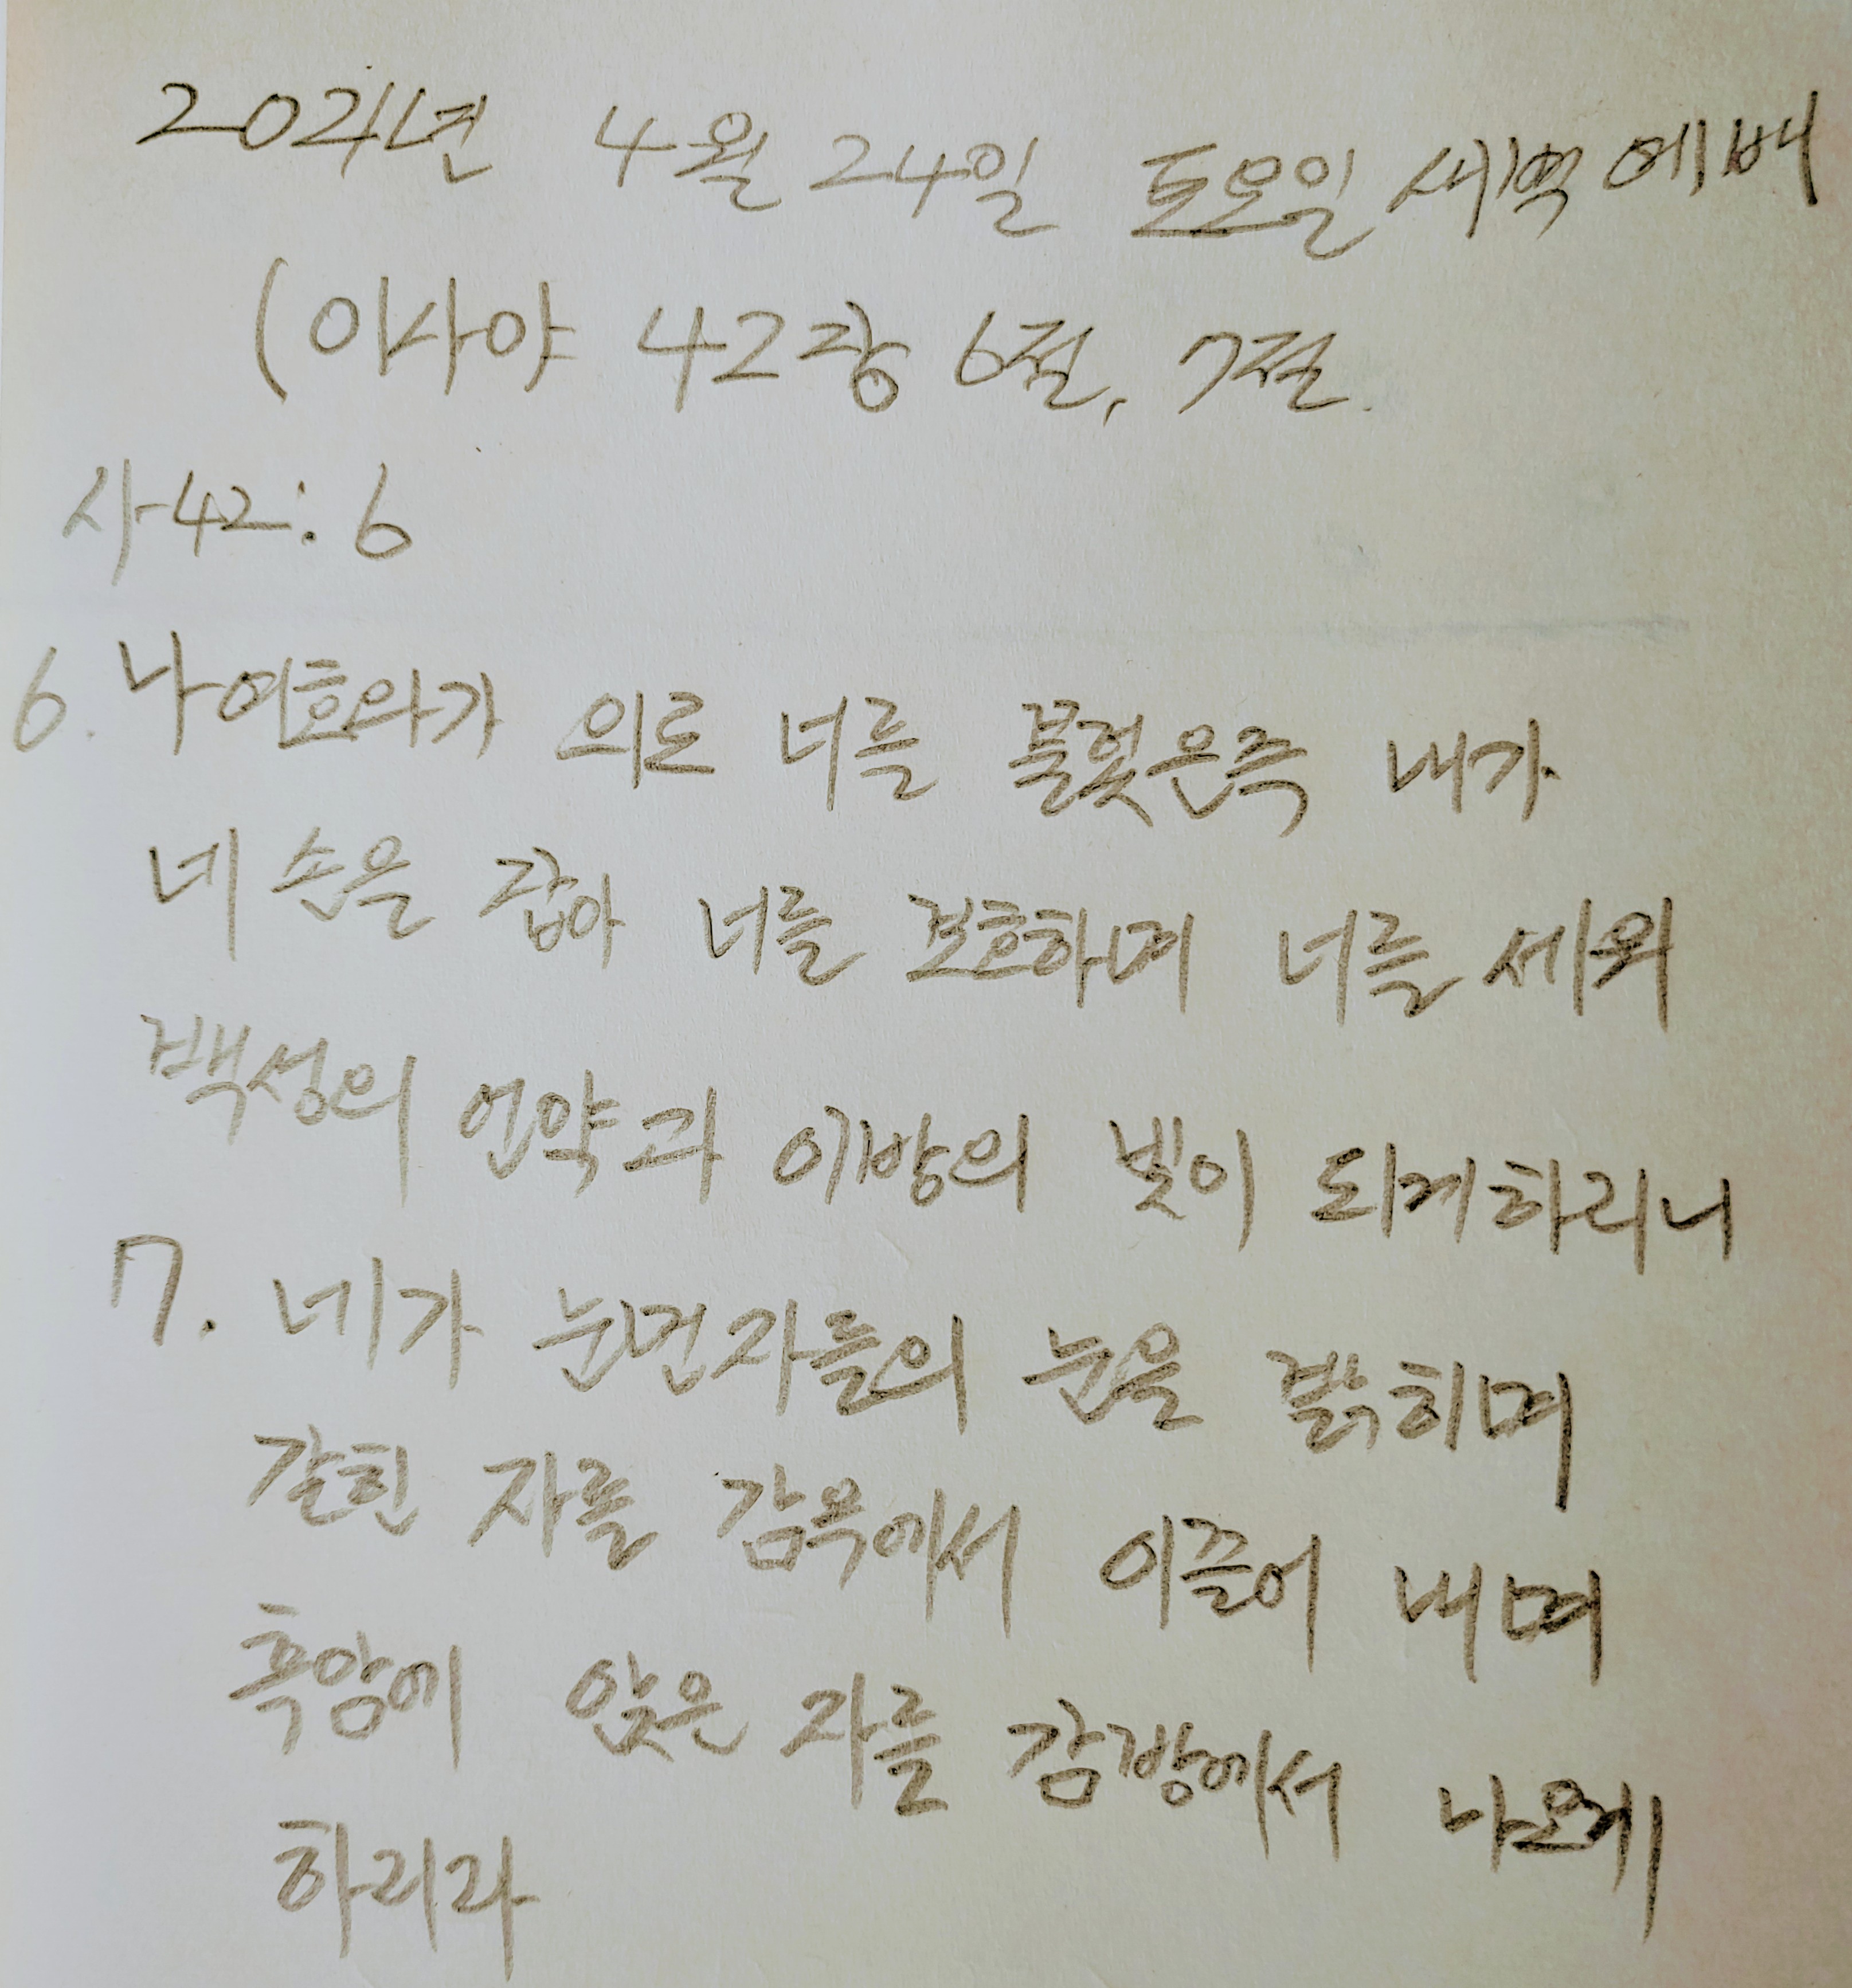 2021년 4월 24일 토요일 새벽예배
(이사야 42장 6절, 7절
사42:6
6. 나여호와가 의로 너를 불렀은즉 내가
네 손을 잡아 너를 보호하며 너를 세워
백성의 언약과 이방의 빛이 되게하리니
7. 네가 눈먼자들의 눈을 밝히며
갇힌 자를 감옥에서 이끌어 내며
흑암에 앉은 자를 감방에서 나오게
하리라